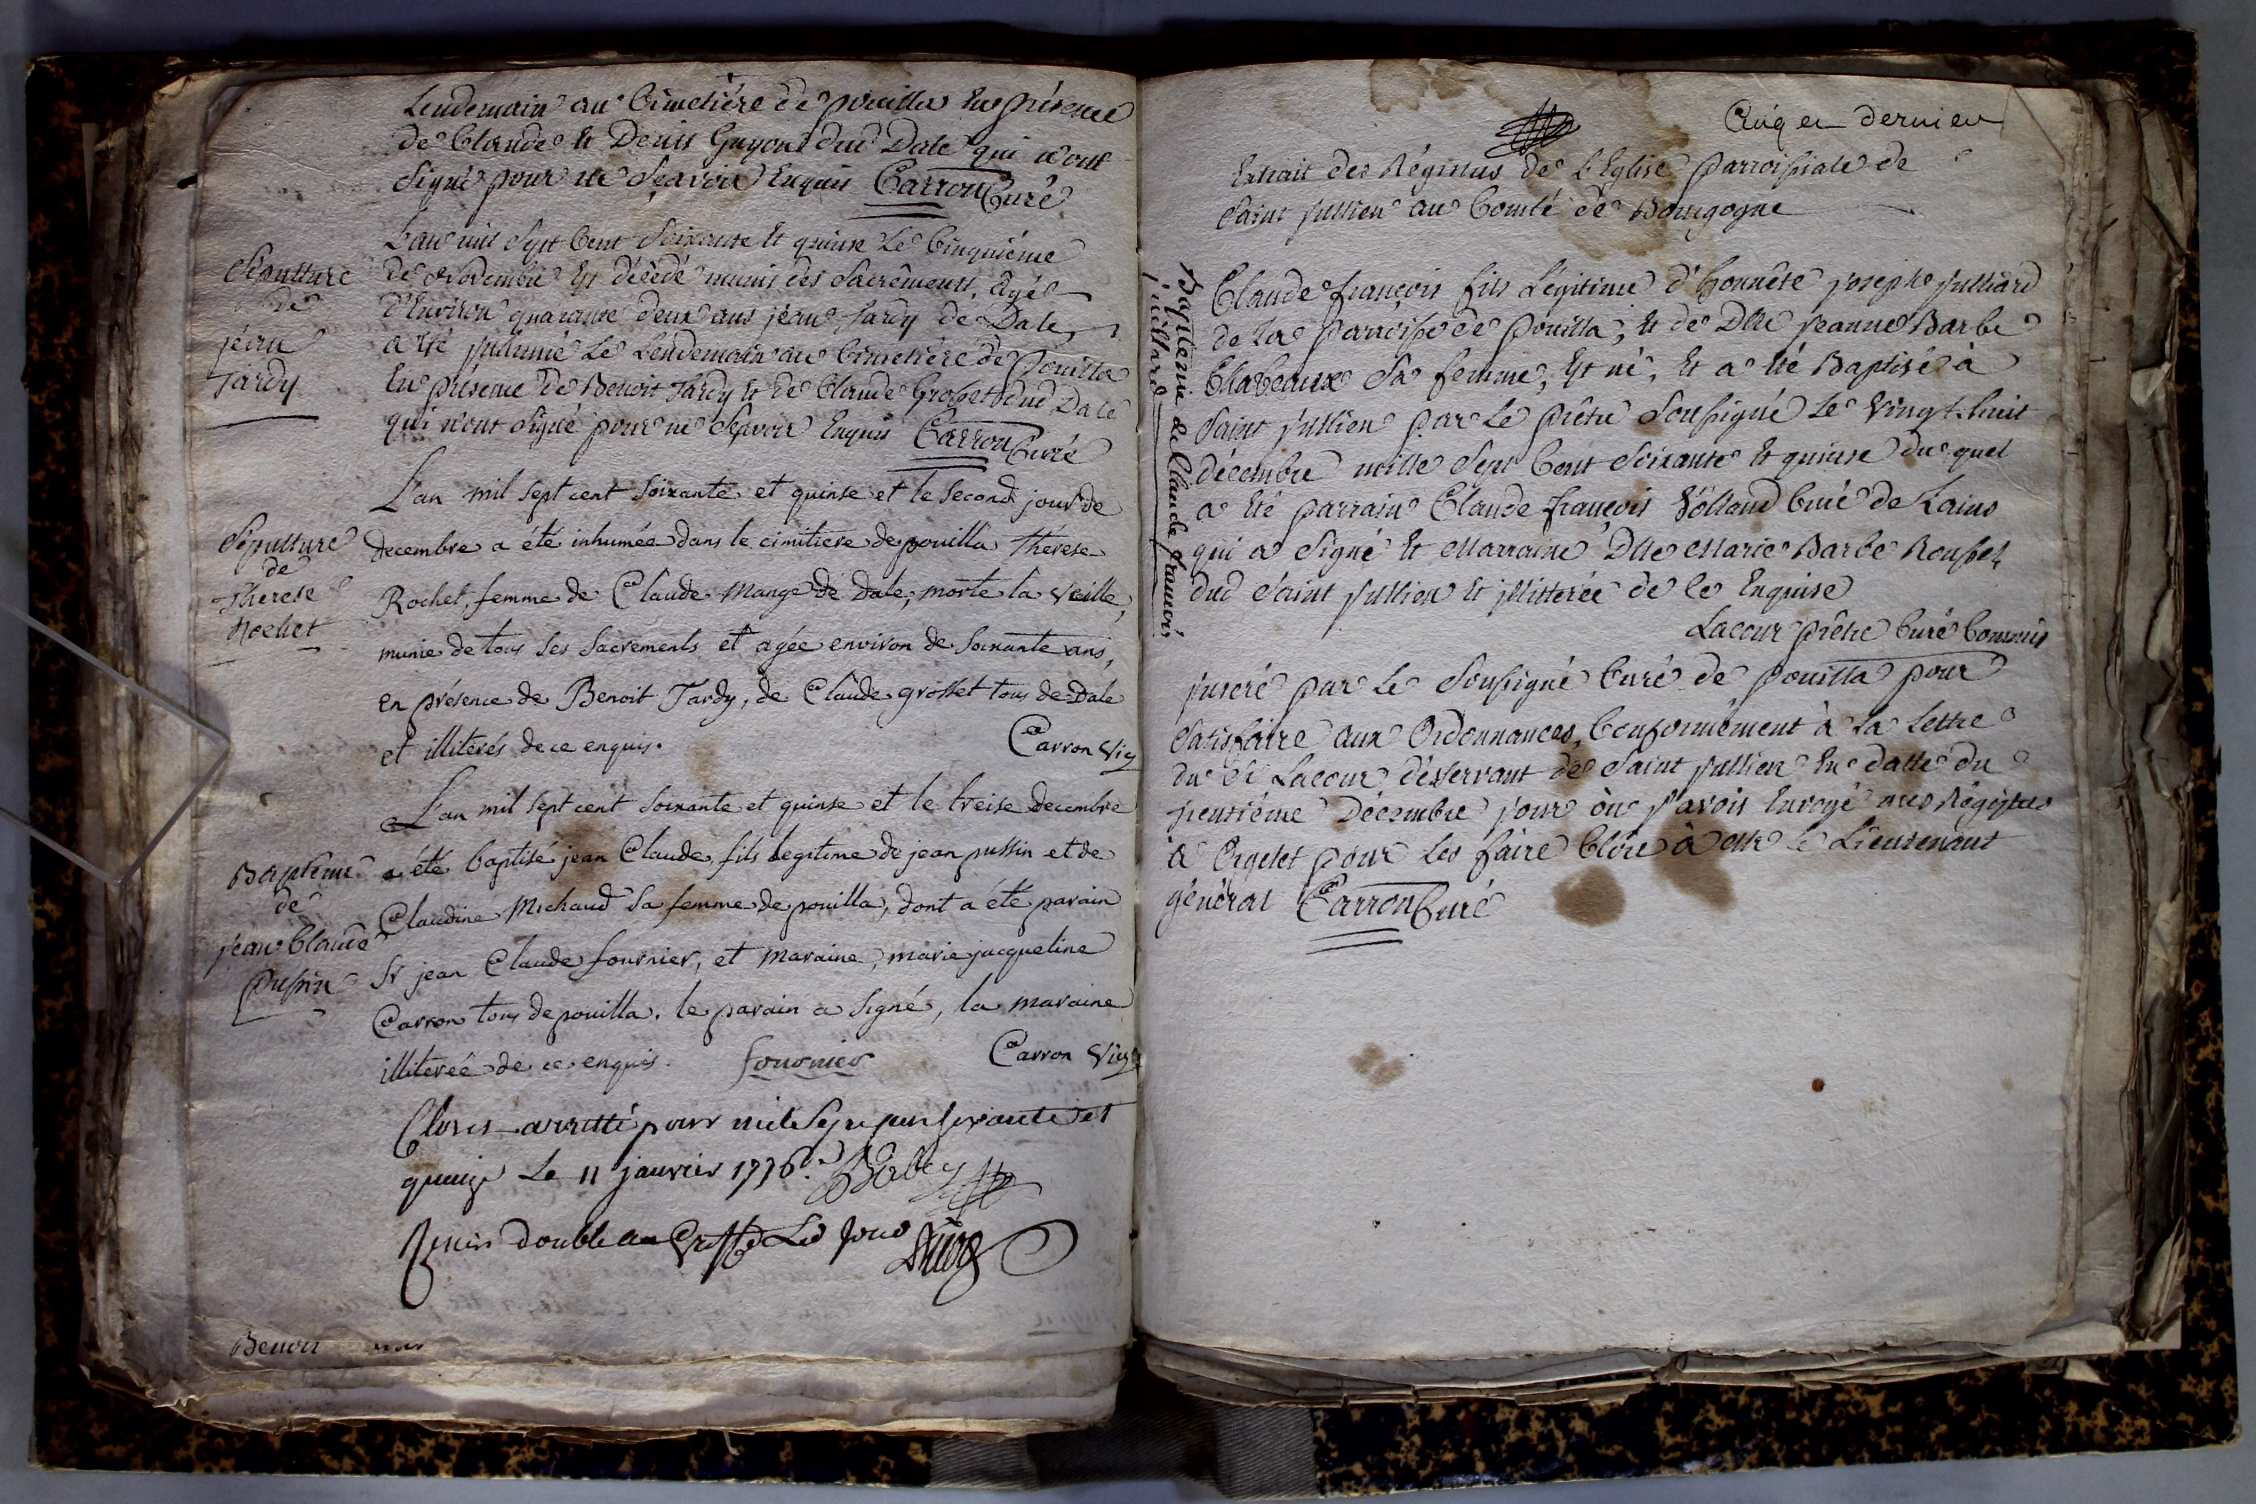 Lendemain au Cimetiére de pouilla En présence
de Claude Et Denis Guyon dud Dale qui n'ont
Signé pour ne Sçavoir Enquis Carron Curé
Sépulture
de
jean
Tardy
L'an mil Sept Cent Soixante Et quinse Le Cinquiéme
de Novembre Est décédé munis des Sacrêments, Agé
d'Environ quarante deux ans jean Tardy de Dale
a Eté Inhumé Le Lendemain au Cimetiére de Pouilla
En présence de Benoit Tardy Et de Claude Grosset dud Dale
qui n'ont Signé pour ne Sçavoir Enquis Carron Curé
Sépulture
de
Therese
Rochet
L'an mil sept cent soixante et quinse et le second jour de
decembre a été inhumée dans le cimitiere de pouilla Thérese
Rochet, femme de Claude Mange de Dale, morte la veille,
munie de tous ses sacrements et agée environ de soixante ans,
en présence de Benoit Tardy, de Claude grosset tous de Dale
et illiterés de ce enquis. Carron Vic
Baptême
de
jean Claude
Pussin
L'an mil sept cent soixante et quinse et le treise decembre
a été baptisé jean Claude, fils legitime de jean pussin et de
Claudine Michaud sa femme de pouilla, dont a été parain
Sr jean Claude fournier, et maraine, marie jacqueline
Carron tous de pouilla. le parain a signé, la maraine
illiterée de ce enquis. fournier Carron Vic
Clos et arretté pour mil Sept cent soixante et
quinze Le 11 janvier 1776.
Remis double au Greffe Led jour
Benoit
dernier
Extrait des Régistres de L'Eglise Parroissiale de
Saint Jullien au Comté de Bourgogne
Baptême de Claude françois
juillard
Claude françois fils Légitime d'honnête joseph Julliard
de La Parroisse de Pouilla, Et de Dlle Jeanne Barbe
Claveaux Sa femme, Est né, Et a Eté Baptisé à
Saint Jullien par Le Prêtre Soussigné Le Vingt-huit
décembre mille Sept Cent Soixante Et quinse du quel
a Eté parrain Claude françois Volland Curé de Lains
qui a Signé Et Marraine Dlle Marie Barbe Rousset
dud Saint Jullien Et illitterée de Ce Enquise
Lacour Prêtre Curé Commis
Inseré par Le Soussigné Curé de Pouilla pour
Satisfaire aux Ordonnances, Conformément à La Lettre
du Sr Lacour désservant de Saint Jullien En datte du
trentiéme Décembre jour où j'avois Envoyé mes Régistres
à Orgelet pour Les faire Clôre à Mr Le Lieutenant
général Carron Curé